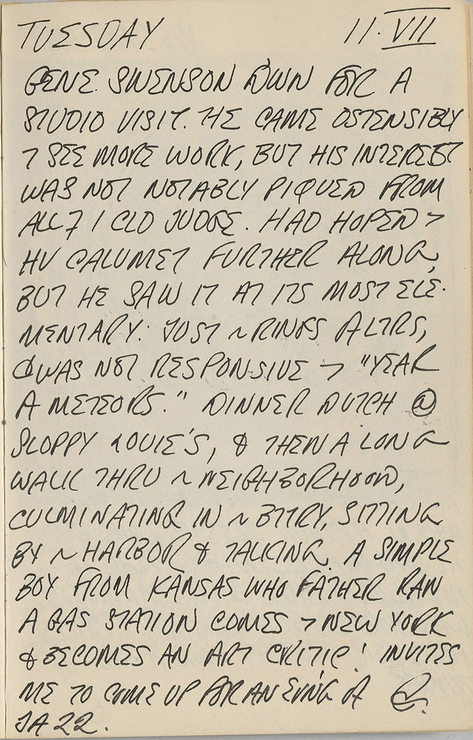 TUESDAY 11·VII
GENE SWENSON DOWN FOR A
STUDIO VISIT. HE CAME OSTENSIBLY
7 SEE MORE WORK, BUT HIS INTEREST
WAS NOT NOTABLY PIQUED FROM
ALL 7 I CLD JUDGE. HAD HOPED 7
HV CALUMET FURTHER ALONG,
BUT HE SAW IT AT ITS MOST ELE-
MENTARY: JUST ~ RINGS & LTRS,
& WAS NOT RESPONSIVE 7 "YEAR
A METEORS." DINNER DUTCH @
SLOPPY LOUIE'S, & THEN A LONG
WALK THRU ~ NEIGHBORHOOD,
CULMINATING IN ~ BTTRY, SITTING
BY ~ HARBOR & TALKING. A SIMPLE
BOY FROM KANSAS WHO FATHER RAN
A GAS STATION COMES 7 NEW YORK
& BECOMES AN ART CRITIC! INVITES
ME TO COME UP FOR AN
JA 22.